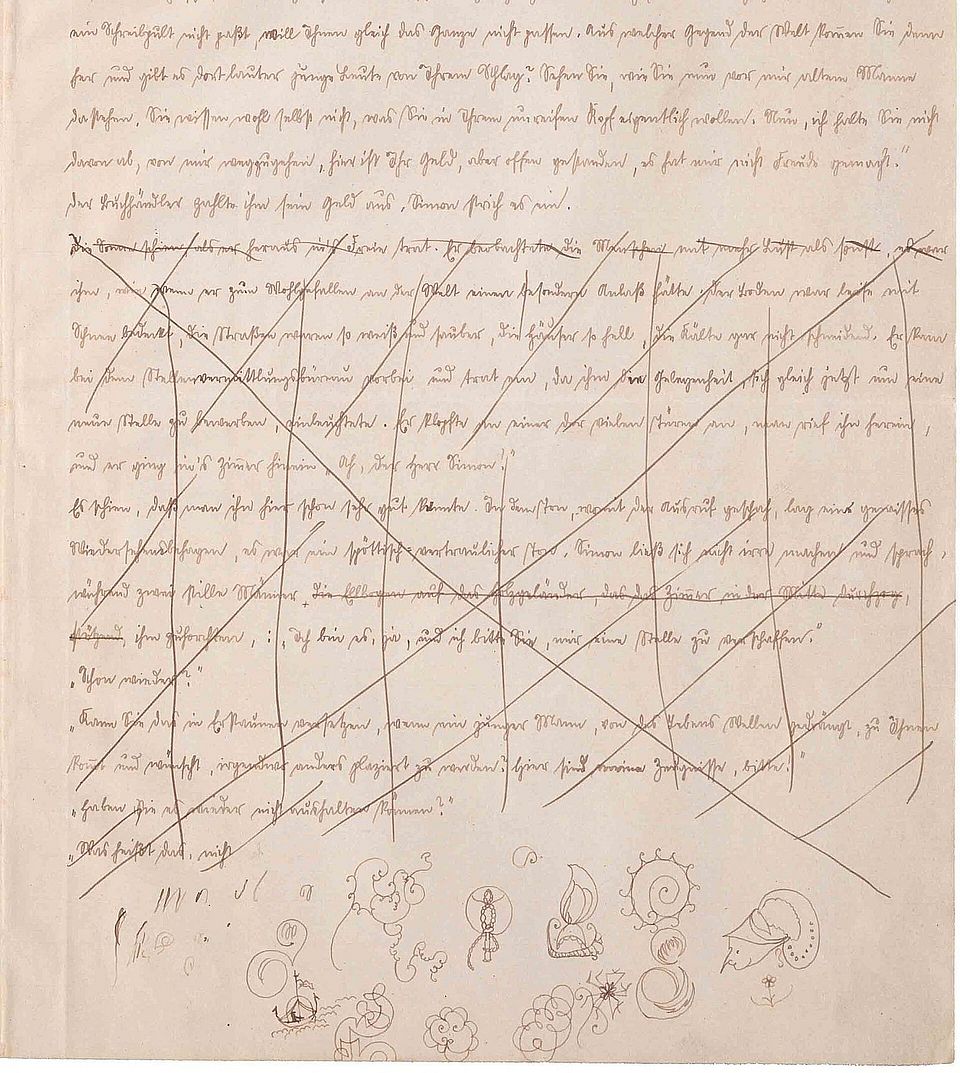 ein Schreibpult nicht paßt, will Ihnen gleich das Ganze nicht passen. Aus welcher Gegend der Welt kom̅en Sie denn
her und gibt es dort lauter junge Leute von Ihrem Schlag? Sehen Sie, wie Sie nun vor mir altem Manne
dastehen. Sie wissen wohl selbst nicht, was Sie in Ihrem unreifen Kopf eigentlich wollen. Nun, ich halte Sie nicht
davon ab, von mir wegzugehen, hier ist Ihr Geld, aber offen gestanden, es hat mir nicht Freude gemacht."
Der Buchhändler zahlte ihm sein Geld aus, Simon strich es ein.
Die Sonne schien, als er heraus ins Freie trat. Er beobachtete die Menschen mit mehr Lust als sonst, es war
ihm, wie wenn er zum Wohlgefallen an der Welt einen besondern Anlaß hätte. Der Boden war leise mit
Schnee bedeckt, die Straßen waren so weiß und sauber, die Häuser so hell, die Kälte gar nicht schneidend. Er kam
bei dem Stellenvermittlungsbüreau vorbei und trat ein, da ihm die Gelegenheit, sich gleich jetzt um eine
neue Stelle zu bewerben, einleuchtete. Er klopfte an einer der vielen Türen an, man rief ihn herein,
und er ging in's Zim̅er hinein. „Ah, der Herr Simon!"
Es schien, daß man ihn hier schon sehr gut kannte. In dem Ton, womit der Ausruf geschah, lag ein gewisses
Wiedersehensbehagen, es war ein spöttisch-vertraulicher Ton. Simon ließ sich nicht irre machen und sprach,
während zwei stille Männer, die Ellbogen auf das Holzgeländer, das das Zimmer in der Mitte durchzog,
stützend, ihm zuhorchten, : „Ich bin es, ja, und ich bitte Sie, mir eine Stelle zu verschaffen."
„Schon wieder?"
„Kann Sie das in Erstaunen versetzen, wenn ein junger Mann, von des Lebens Wellen gedrängt, zu Ihnen
kom̅t und wünscht, irgendwo anders plaziert zu werden? Hier sind meine Zeugnisse, bitte!"
„Haben Sie es wieder nicht aushalten können?"
„Was heißt das, nicht